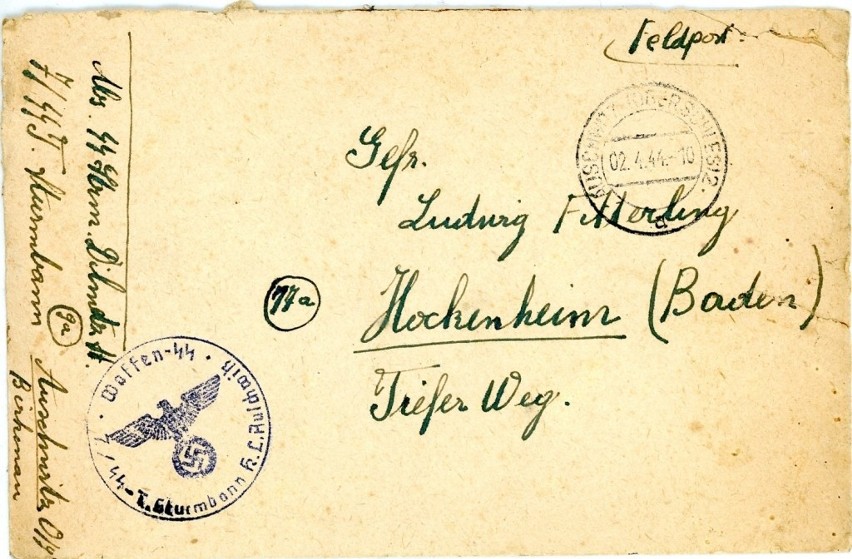 Feldpost.
AUSCHWITZ (OBERSCHLES) 2
02.4.44.-10
a
Gefr.
Ludwig Fitterling
Hockenheim (Baden)
17a
Tiefer Weg.
Abs. SS Strm. H.
7/SS T. Sturmbann
9a
Auschwitz O/S
Birkenau
Waffen-SS
7/SS-T. Sturmbann K.L. Auschwitz